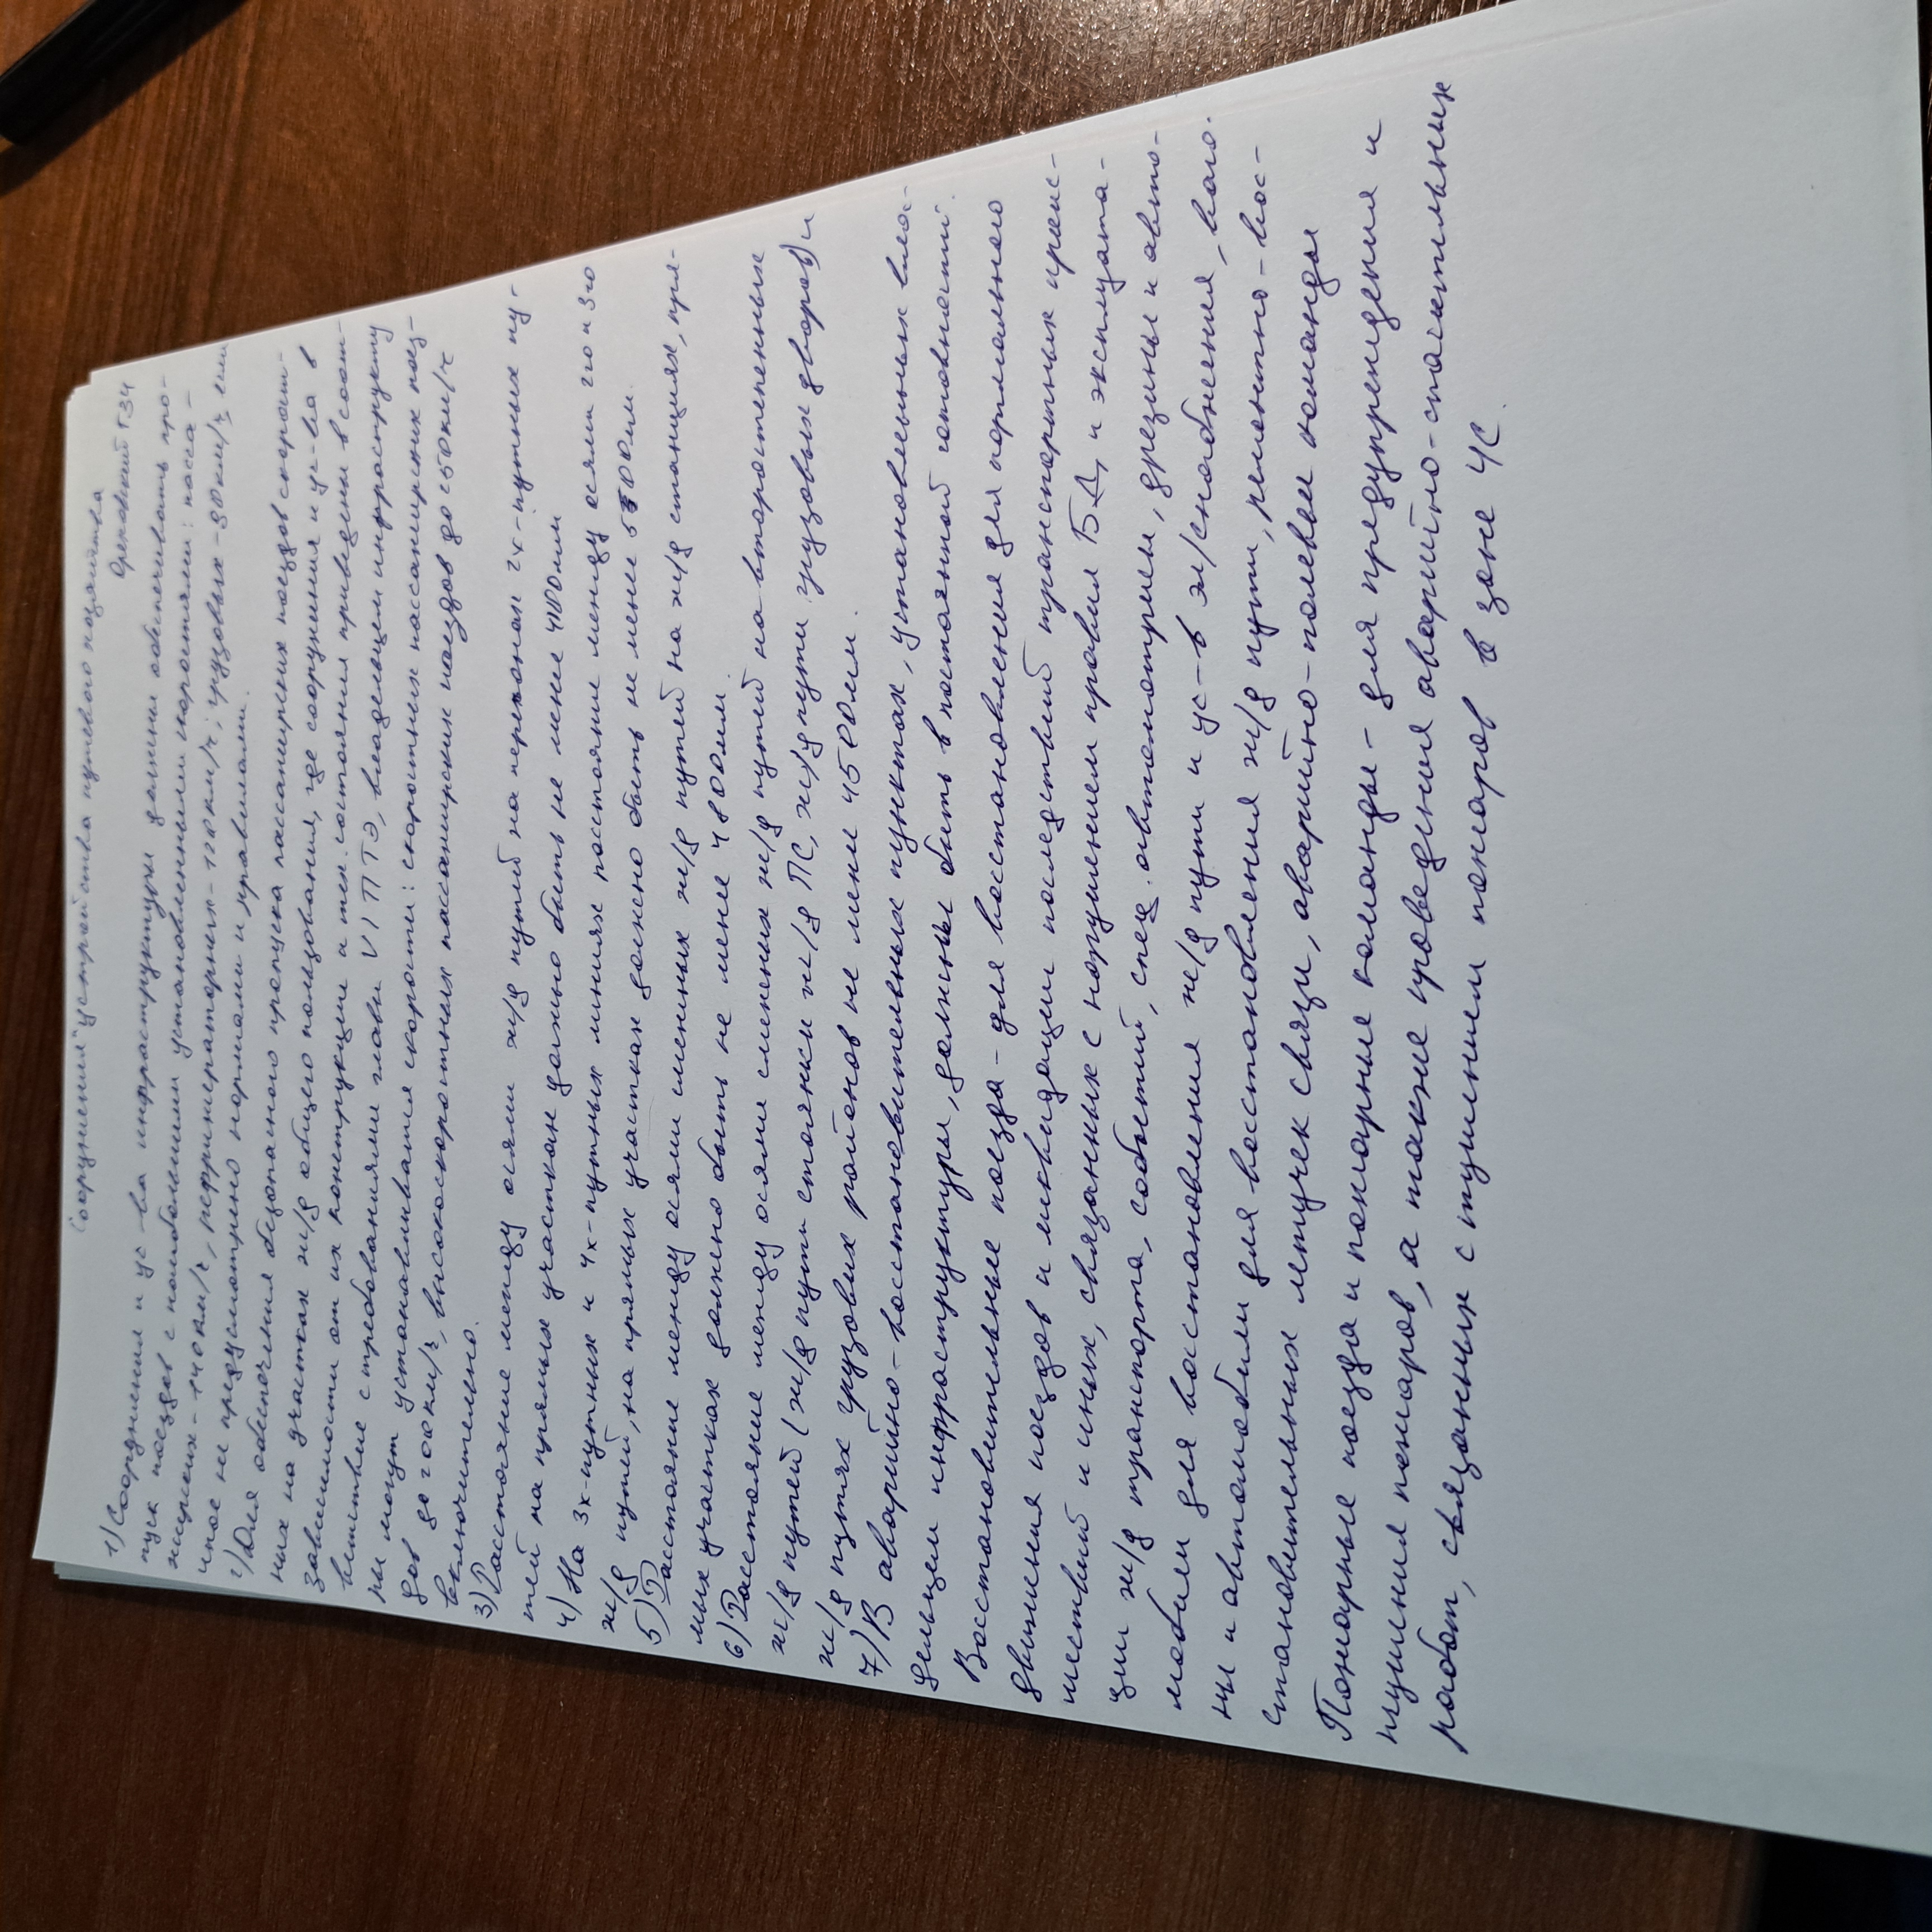 Сооружения "устройства путевого хозяйства
Ореховский Г34
1) Сооружения и ус-ва инфраструктуры должны обеспечивать про-
пуск поездов с наибольшими установленными скоростями: пасса-
жирских-140км/ч, рефрижераторных-120км/ч; грузовых-90км/ч если
иное не предусмотрено нормами и правилами.
2) Для обеспечения безопасного пропуска пассажирских поездов скорост-
ных на участках ж/д общего пользования, где сооружения и ус-ва в
зависимости от их конструкции и тех. состояния приведены в соот-
ветствие с требованиями главы VI ПТЭ, владельцем инфраструкту
ры могут устанавливатся скорости: скоростных пассажирских поез-
дов до 200км/ч, высокоскоростных пассажирских поездов до 250км/ч
включительно.
3) Расстояние между осями ж/д путей на перегонах 2х-путных пу-
тей на прямых участках должно быть не менее 4100мм
4) На 3х-путных и 4х-путных линиях расстояние между осями 2го и 3го
ж/д путей, на прямых участках должно быть не менее 5000мм.
5) Расстояние между осями смежных ж/д путей на ж/д станциях, пря-
мых участках должно быть не менее 4800мм.
6) Расстояние между осями смежных ж/д путей на второстепенных
ж/д путей (ж/д пути стоянки ж/д ПС, ж/д пути грузовых дворов) и
ж/д путях грузовых районов не менее 4500мм.
7) В аварийно-восстановительных пунктах, установленных вла-
дельцем инфраструктуры, должны быть в постоянной готовности.
Восстановительные поезда-для восстановления для нормального
движения поездов и ликвидации последствий транспортных проис-
шествий и иных, связанных с нарушением правил БД, и эксплуата-
ции ж/д транспорта, событий, спец. автомотрисы, дрезины и авто-
мобили для восстановления ж/д пути и ус-в эл/снабжения, ваго.
ны и автомобили для восстановления ж/д пути, ремонтно-вос-
становительных летучек связи, аварийно-полевые команды
Пожарные поезда и пожарные команды-для предупреждения и
тушения пожаров, а также проведения аварийно-спасительных
работ, связанных с тушением пожаров в зоне ЧС